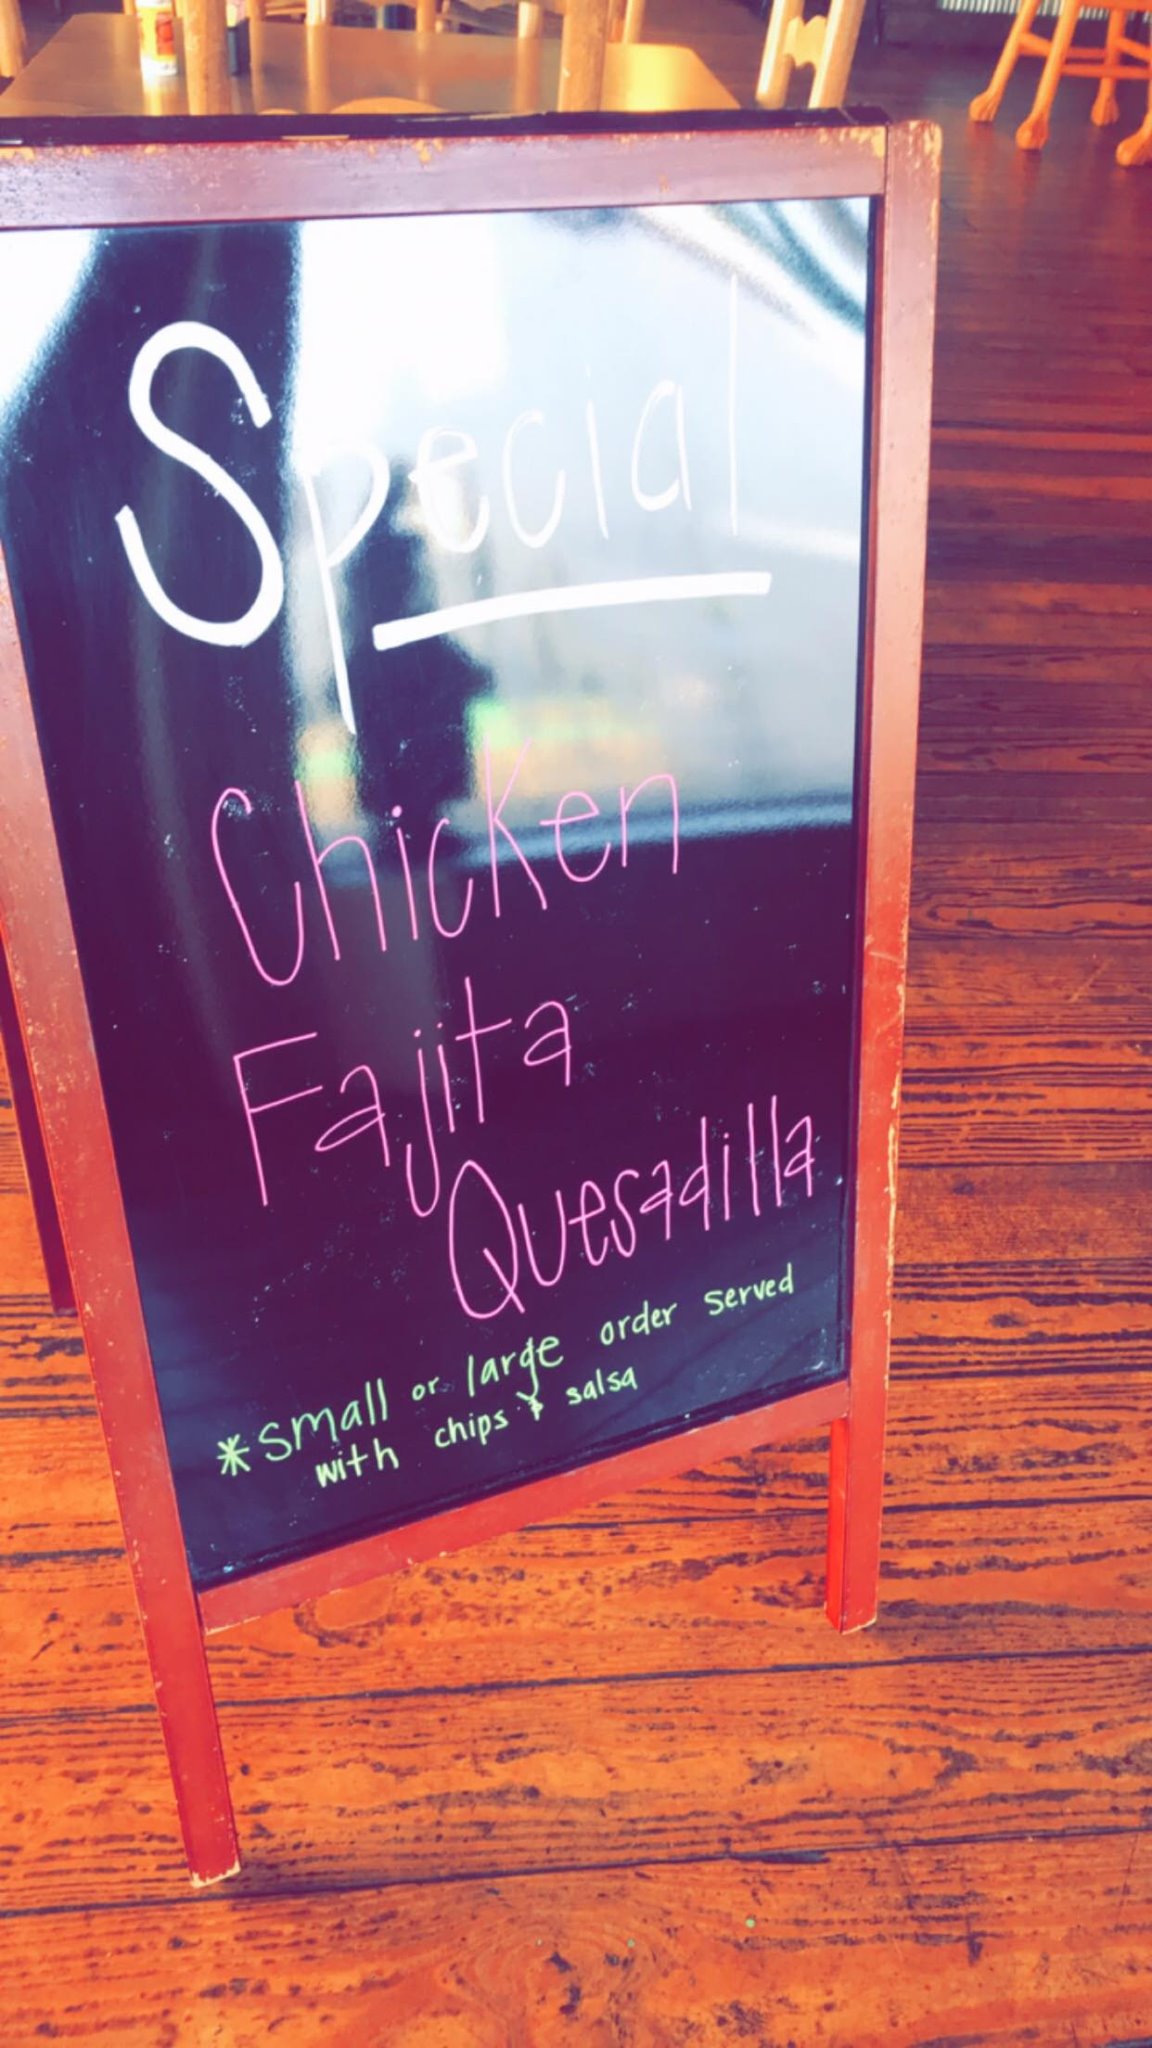 Special
Chicken
Fajita
Quesadilla
*small or large order served
with chips & salsa